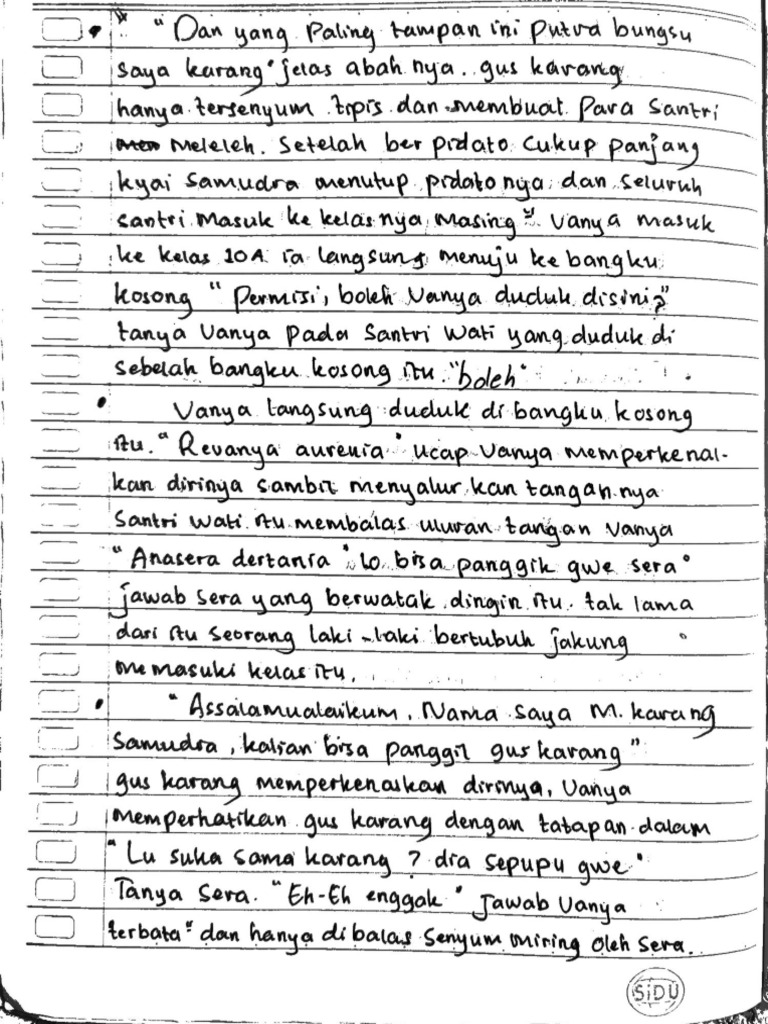 "Dan yang Paling tampan ini Putra bungsu
saya karang" jelas abah nya. gus karang
hanya tersenyum tipis dan membuat Para Santri
meleleh. Setelah ber pidato Cukup panjang
kyai Samudra menutup pidato nya dan Seluruh
santri masuk ke kelas nya masing" Vanya masuk
ke kelas 10A ia langsung menuju ke bangku
kosong "Permisi, boleh Vanya duduk disini?"
tanya Vanya pada Santri Wati yang duduk di
sebelah bangku kosong itu. "boleh"
Vanya langsung duduk di bangku kosong
itu. "Revanya aurenia" Ucap Vanya memperkenal-
kan dirinya sambit menyalur kan tangan nya
Santri Wati itu membalas uluran tangan Vanya
"Anasera dertania" "lo bisa panggik gwe sera"
jawab sera yang berwatak dingin itu. tak lama
dari itu seorang laki-laki bertubuh jakung
memasuki kelas itu.
"Assalamualaikum, Nama saya M. karang
Samudra, kalian bisa panggil gus karang"
gus karang memperkenalkan dirinya, Vanya
memperhatikan gus karang dengan tatapan dalam
"Lu suka sama karang ? dia sepupu gwe"
Tanya Sera. "Eh-Eh enggak" jawab Vanya
terbata" dan hanya di balas senyum miring oleh Sera.
SiDU